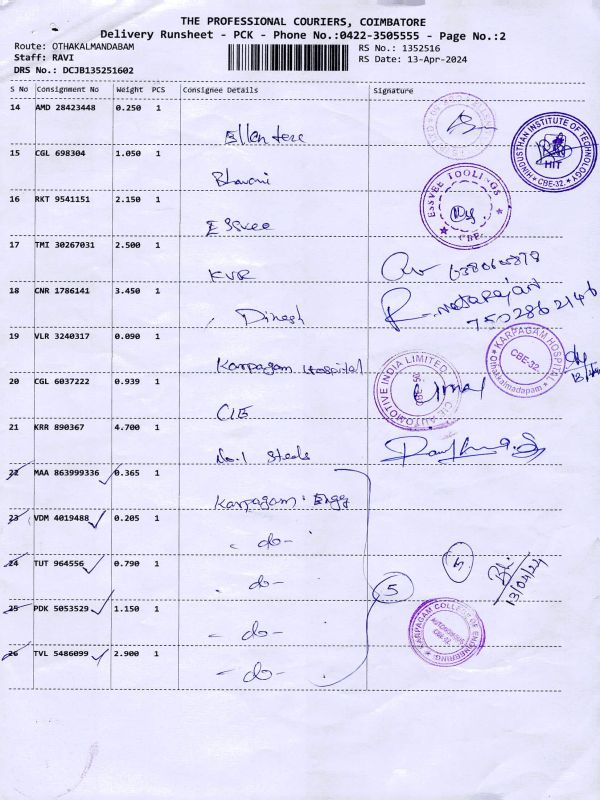 THE PROFESSIONAL COURIERS, COIMBATORE
Delivery Runsheet - PCK - Phone No.:0422-3505555 - Page No.:2
Route: OTHAKALMANDABAM
RS No.: 1352516
Staff: RAVI
RS Date: 13-Apr-2024
DRS No.: DCJB135251602
S No Consignment No Weight PCS Consignee Details Signature
14 AMD 28423448 0.250 1
HINDUSTHAN INSTITUTE OF TECHNOLOGY
HIT
CBE-32.
15 CGL 698304 1.050 1
Bhavani
16 RKT 9541151 2.150 1
Essvee
ESSVEE TOOLINGS
CBE.
17 TMI 30267031 2.500 1
KVR
18 CNR 1786141 3.450 1
Dinesh
R. Natarajan
7502862146
19 VLR 3240317 0.090 1
Karpagam Hospital
KARPAGAM HOSPITAL
CBE-32.
Othakalmadapam
20 CGL 6037222 0.939 1
CIE
CIE AUTOMOTIVE INDIA LIMITED
21 KRR 890367 4.700 1
No.1 Steels
22 MAA 863999336 0.365 1
Karpagam. Engg
23 VDM 4019488 0.205 1
- do -
24 TUT 964556 0.790 1
- do -
5
13/04/24
25 PDK 5053529 1.150 1
- do -
KARPAGAM COLLEGE OF ENGINEERING
AUTONOMOUS
CBE-32.
26 TVL 5486099 2.900 1
- do -